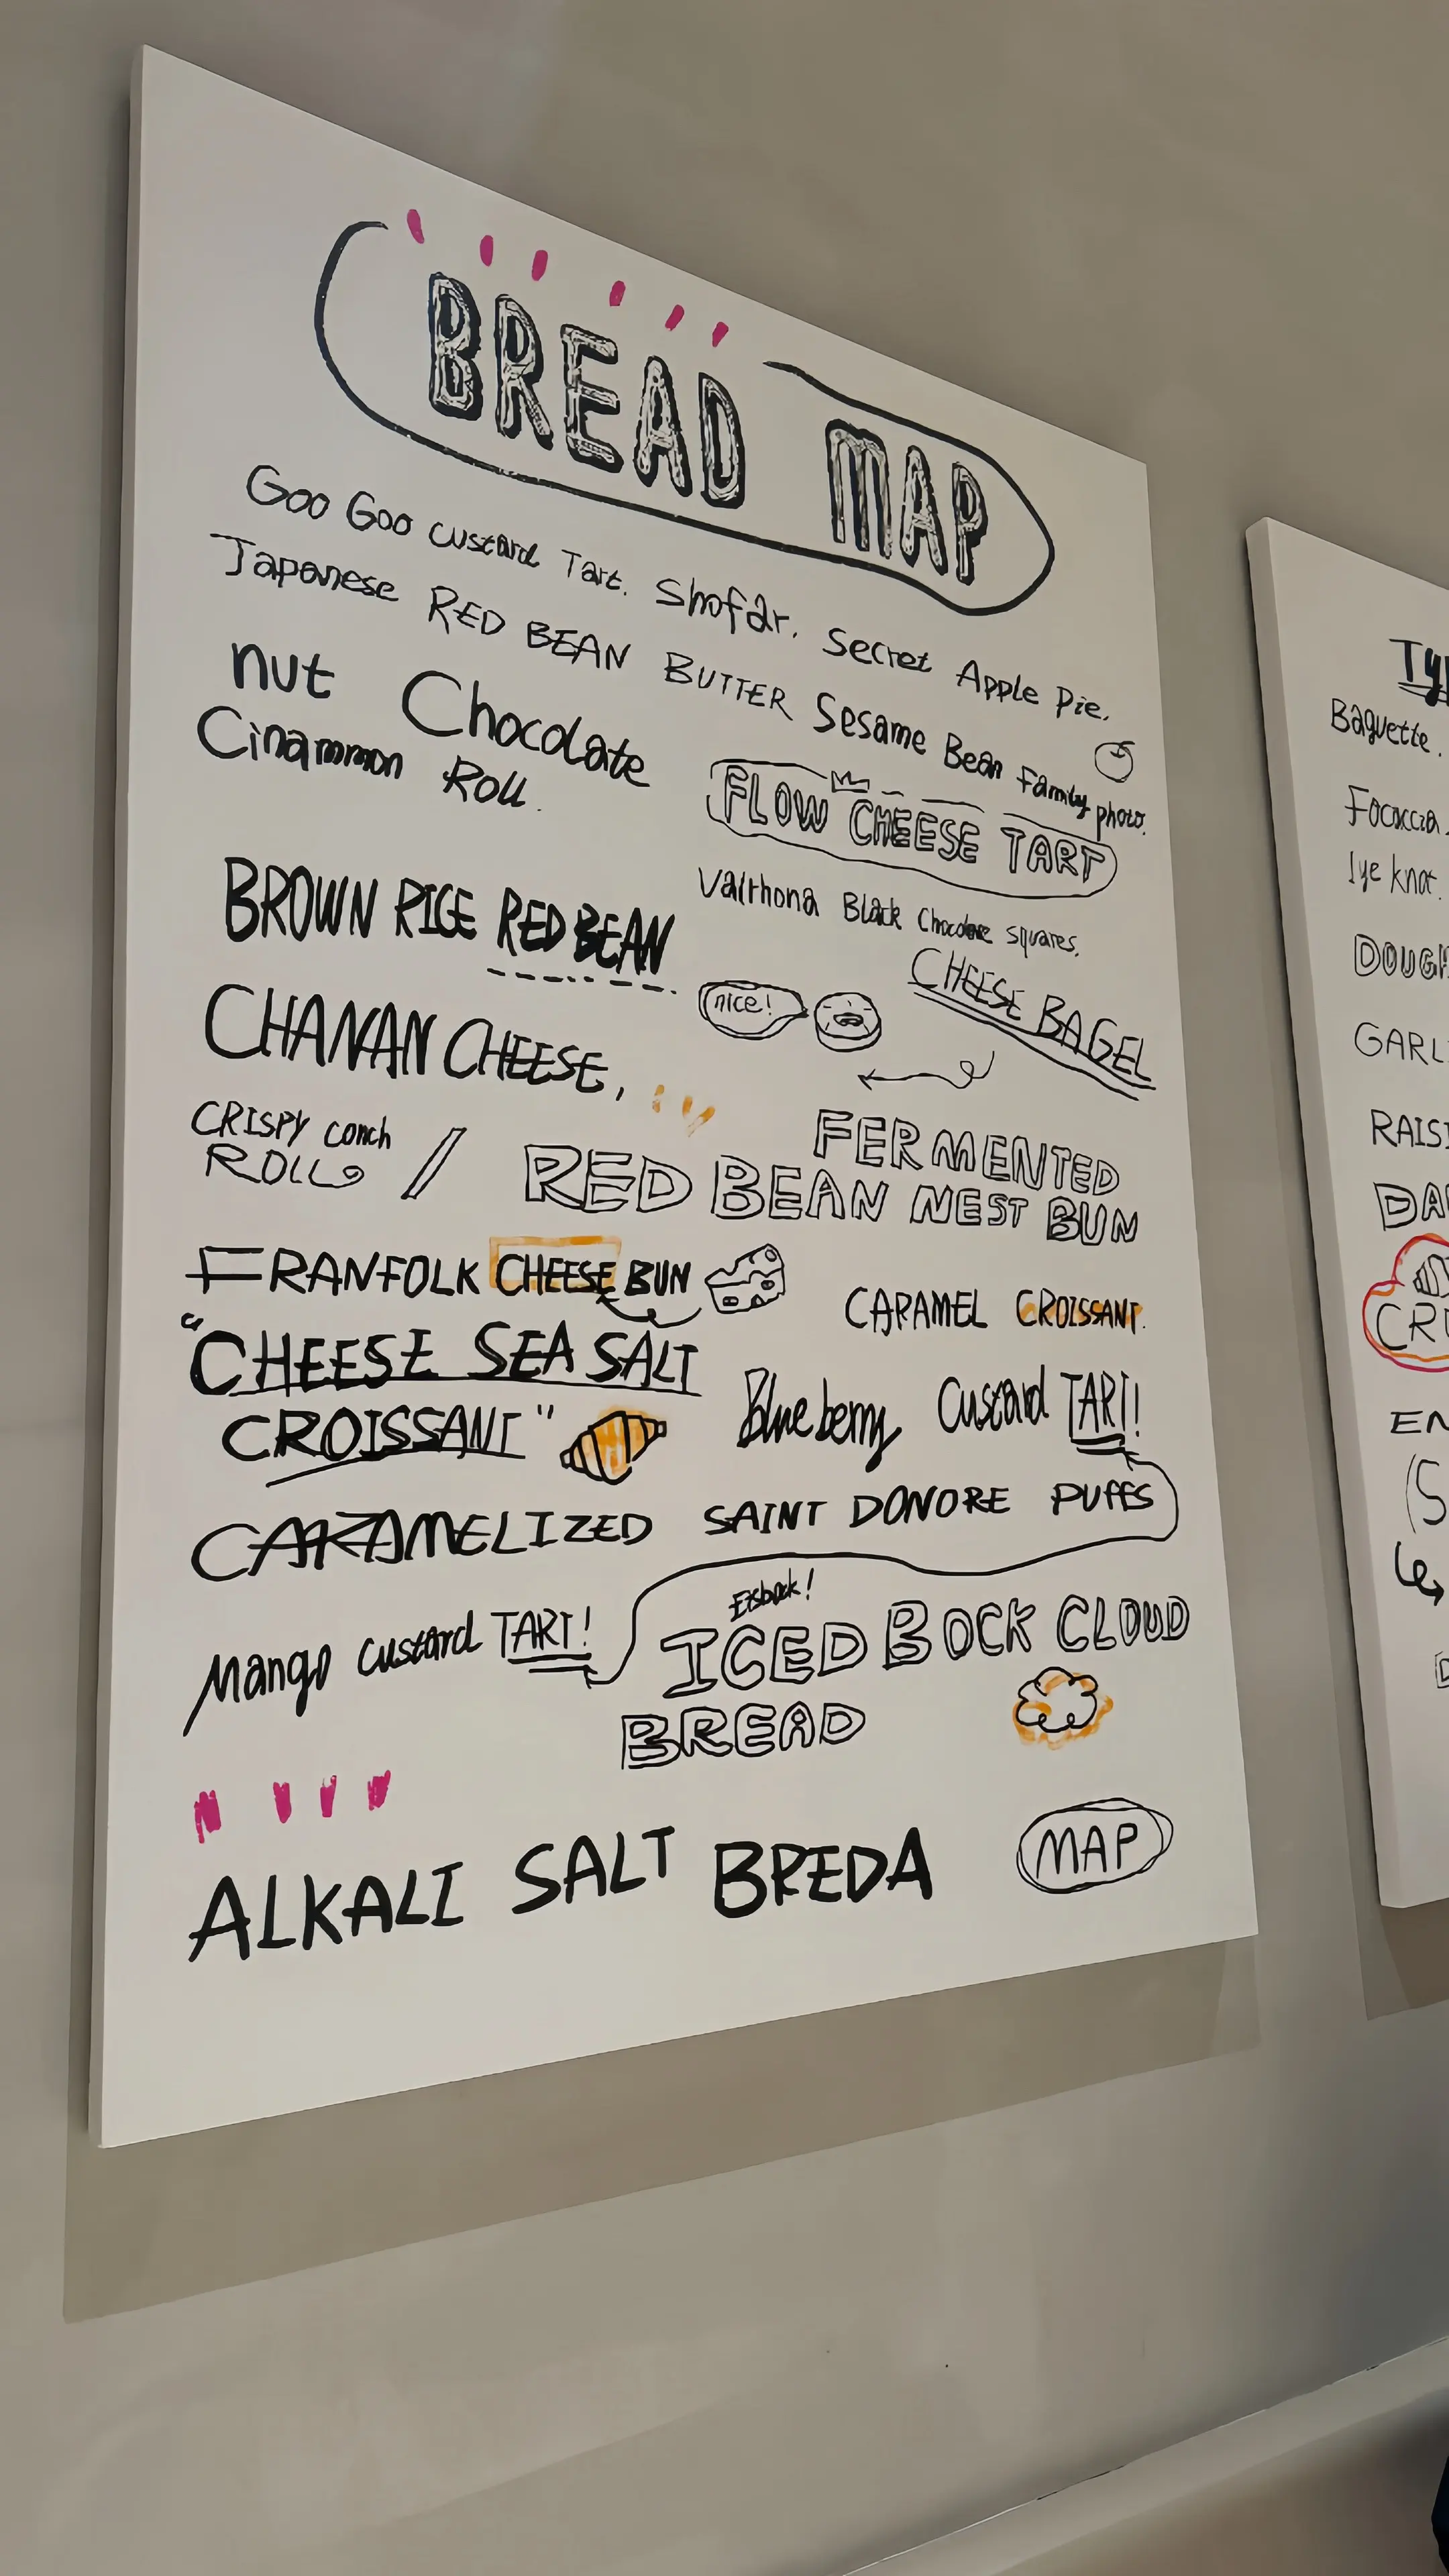 BREAD MAP
Goo Goo custard Tart. Shofar. Secret Apple Pie.
Japanese RED BEAN BUTTER Sesame Bean Family photo.
nut Chocolate
Cinammon Roll.
FLOW CHEESE TART
Valrhona Black Chocolate squares.
BROWN RICE RED BEAN
nice!
CHEESE BAGEL
CHANAN CHEESE,
CRISPY conch
ROLL /
FERMENTED
RED BEAN NEST BUN
FRANFOLK CHEESE BUN
CARAMEL CROISSANT.
"CHEESE SEA SALT
CROISSANT"
Blueberry Custard TART!
CARAMELIZED SAINT DONORE PUFFS
Mango custard TART!
Eisbock!
ICED BOCK CLOUD
BREAD
ALKALI SALT BREDA
MAP
Baguette.
Focaccia
lye knot.